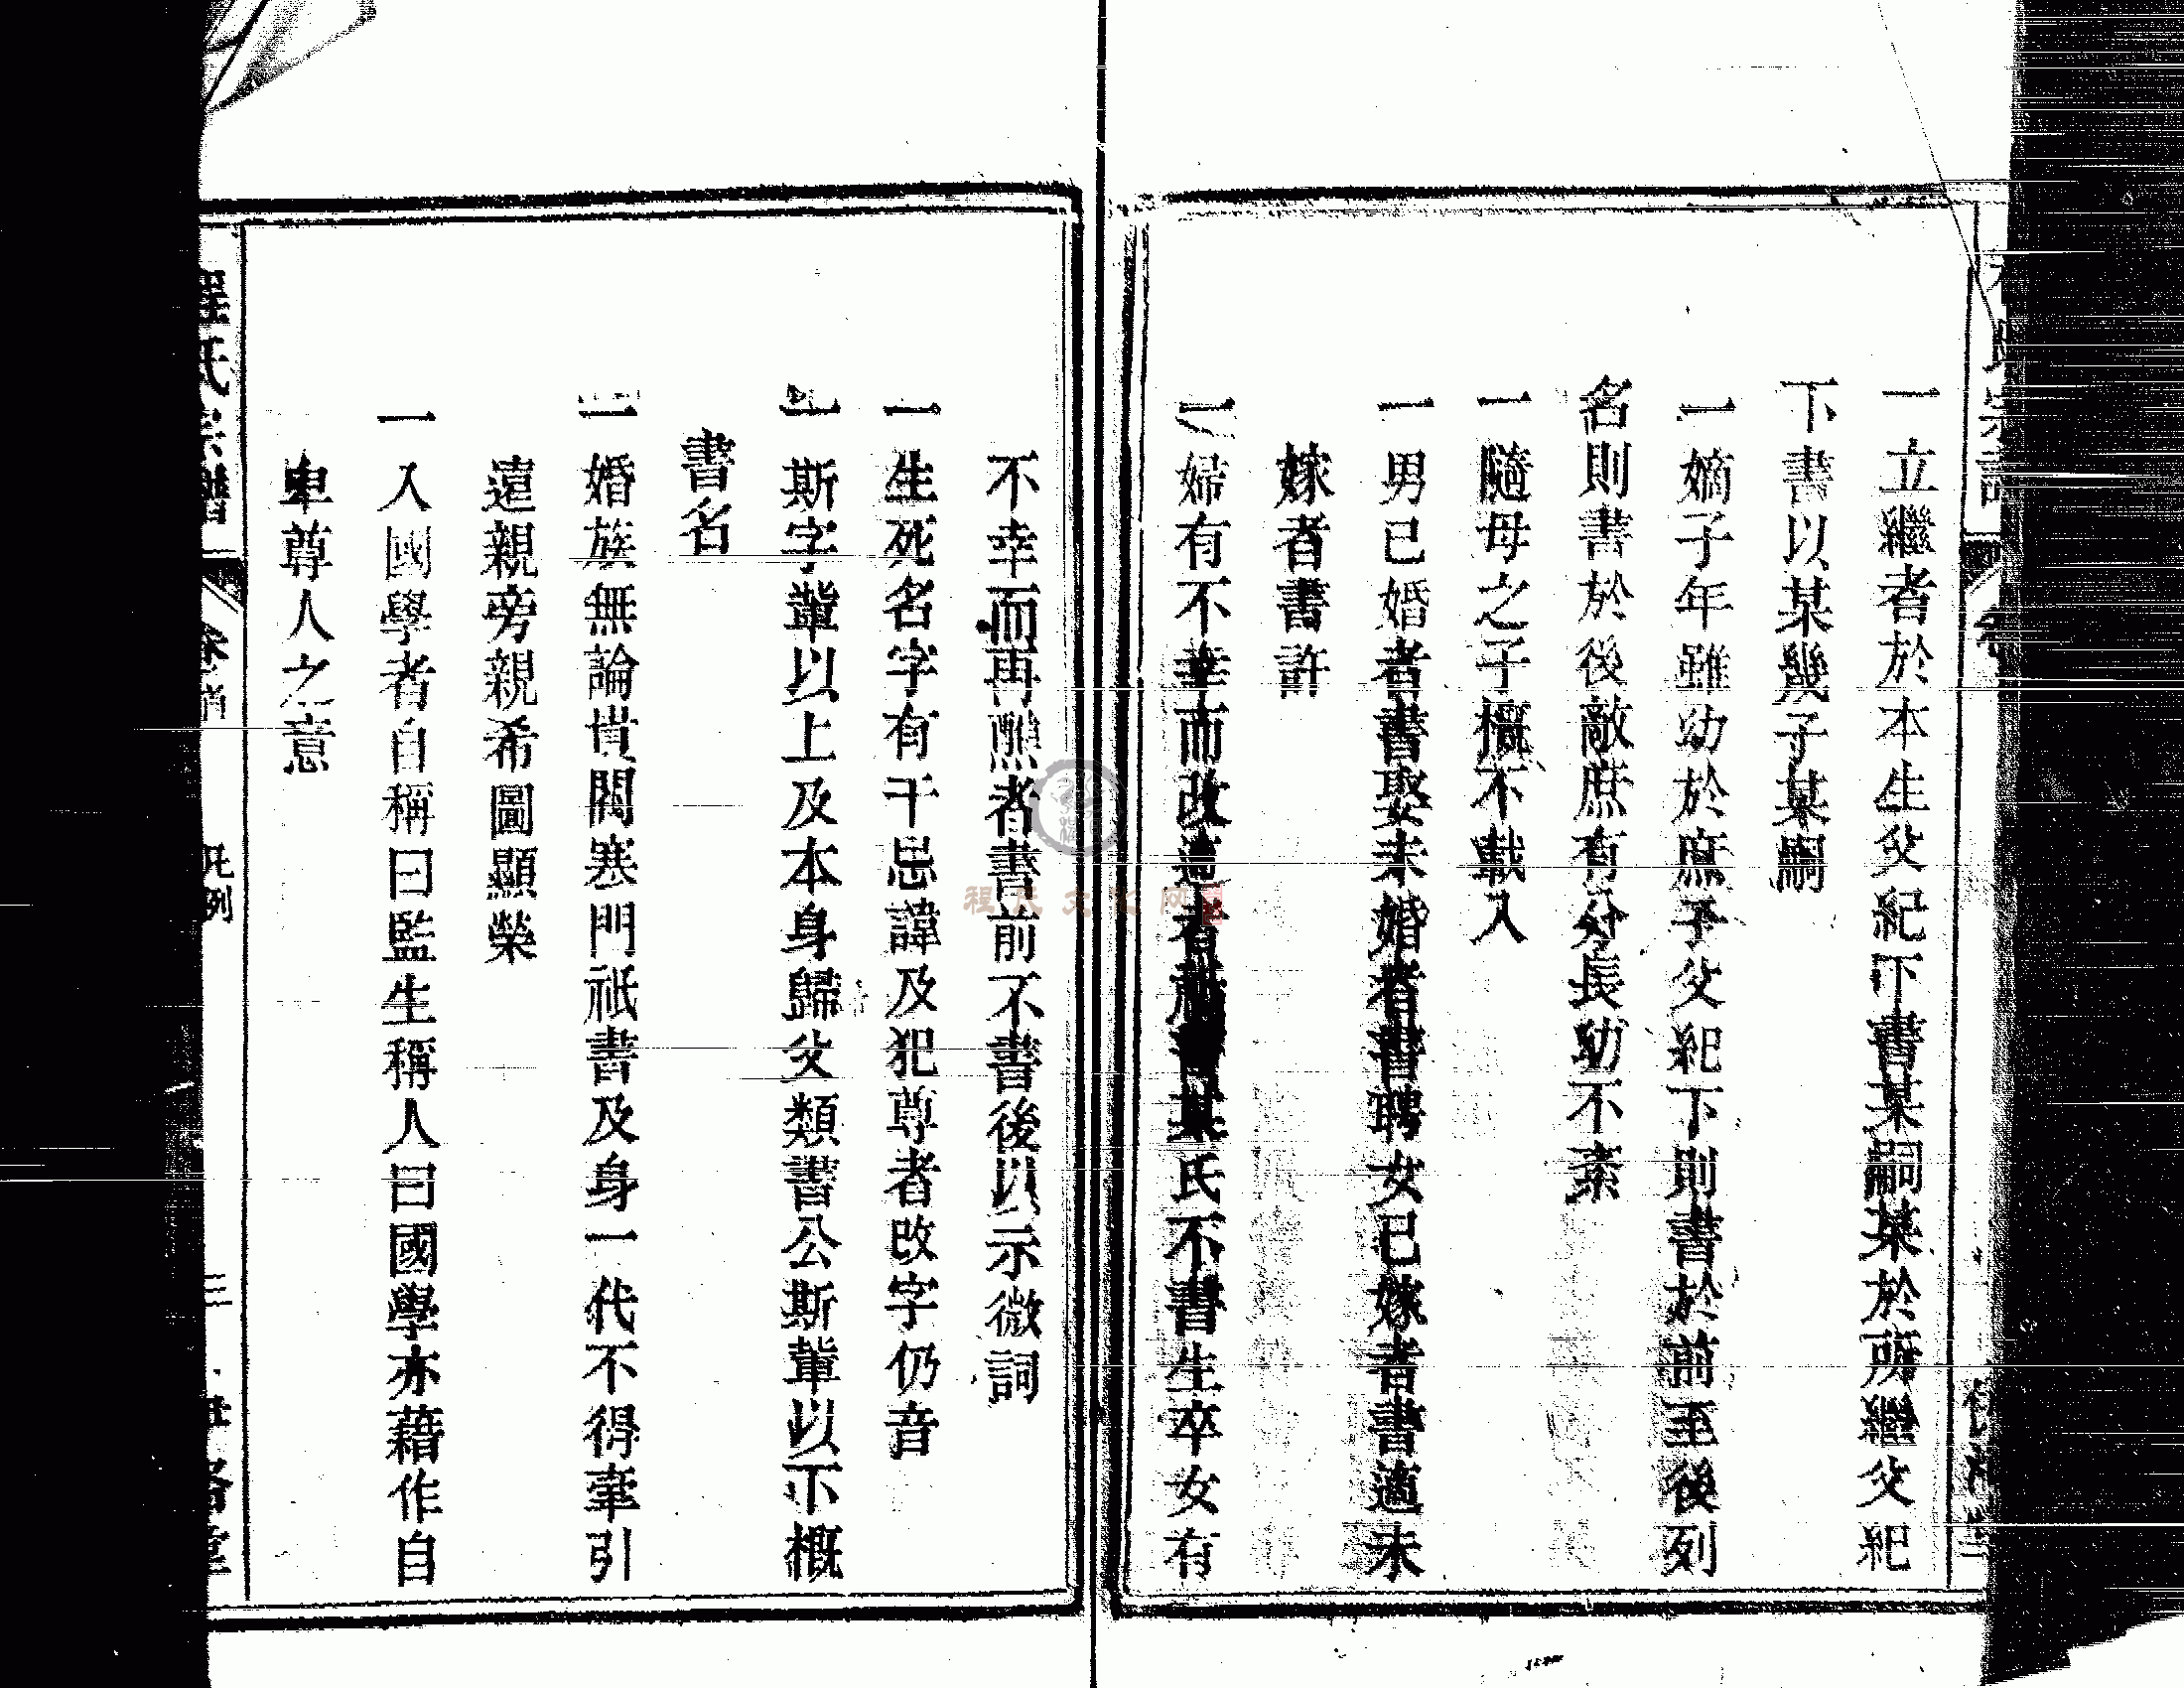 一立繼者於本生父紀下書某嗣某於所繼父紀
下書以某幾子某嗣
一嫡子年雖幼於庶子父紀下則書於前至後列
名則書於後敵庶有分長幼不紊
一隨母之子概不載入
一男已婚者書娶未婚者書聘女已嫁者書適未
嫁者書許
一婦有不幸而改適者書某氏不書生卒女有
不幸而再醮者書前不書後以示微詞
一生死名字有干忌諱及犯尊者改字仍音
一斯字輩以上及本身歸父類書公斯輩以下概
書名
一婚族無論世閥寒門祇書及身一代不得牽引
遠親旁親希圖顯榮
一入國學者自稱曰監生稱人曰國學亦藉作自
卑尊人之意
程氏宗譜
卷首
凡例
三
程氏文化网